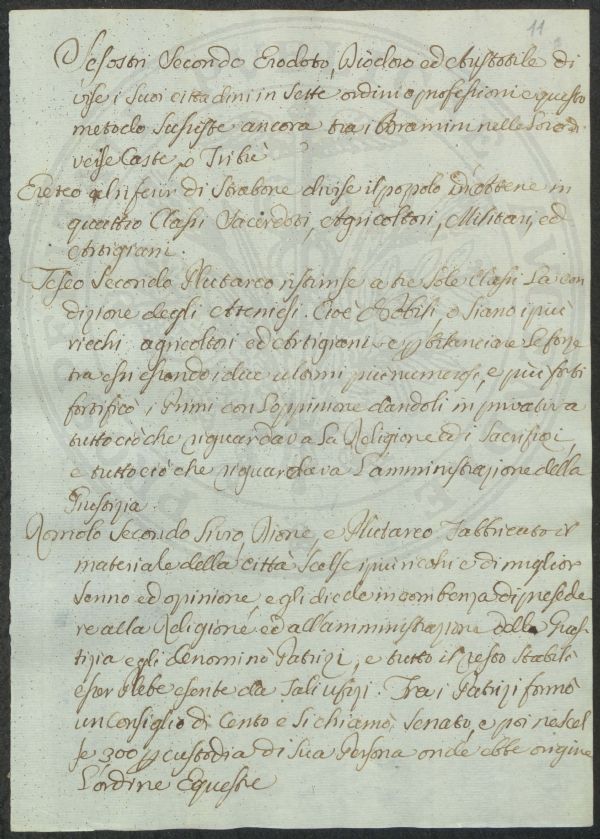 11
Sesostri Secondo Erodoto, Diodoro ed Aristotile di
vise i Suoi cittadini in Sette ordini o professioni e questo
metodo Sussiste ancora tra i Bramini nelle Loro di
verse Caste, o Tribù
Ereteo al riferir di Strabone divise il popolo D'Attene in
quattro Classi Sacerdoti, Agricoltori, Militari, ed
Artigiani.
Teseo Secondo Plutarco ristrinse a tre Sole Classi La con
dizione degli Ateniesi. Cioè Nobili o Siano i più
ricchi agricoltori ed Artigiani e p bilanciare Le forze
tra essi essendo i due ultimi più numerosi, e più forti
fortificò i Primi con L'oppinione dandoli in privativa
tutto ciò che riguardava La Religione ed i Sacrifizi,
e tutto ciò che riguardava L'amministrazione della
Giustizia.
Romolo Secondo Livio, Dione, e Plutarco Fabbricato il
materiale della città Scelse i più ricchi e di miglior
Senno ed opinione, e gli diede incombenza di presede
re alla Religione, ed all'amministrazione della Gius
tizia e gli denominò Patrizi, e tutto il resto Stabilì
esser Plebe esente da Tali ufizi. Tra i Patrizi formò
un Consiglio di Cento e Si chiamò Senato, e poi ne scel
se 300 p custodia di Sua Persona onde ebbe origine
L'ordine Equestre